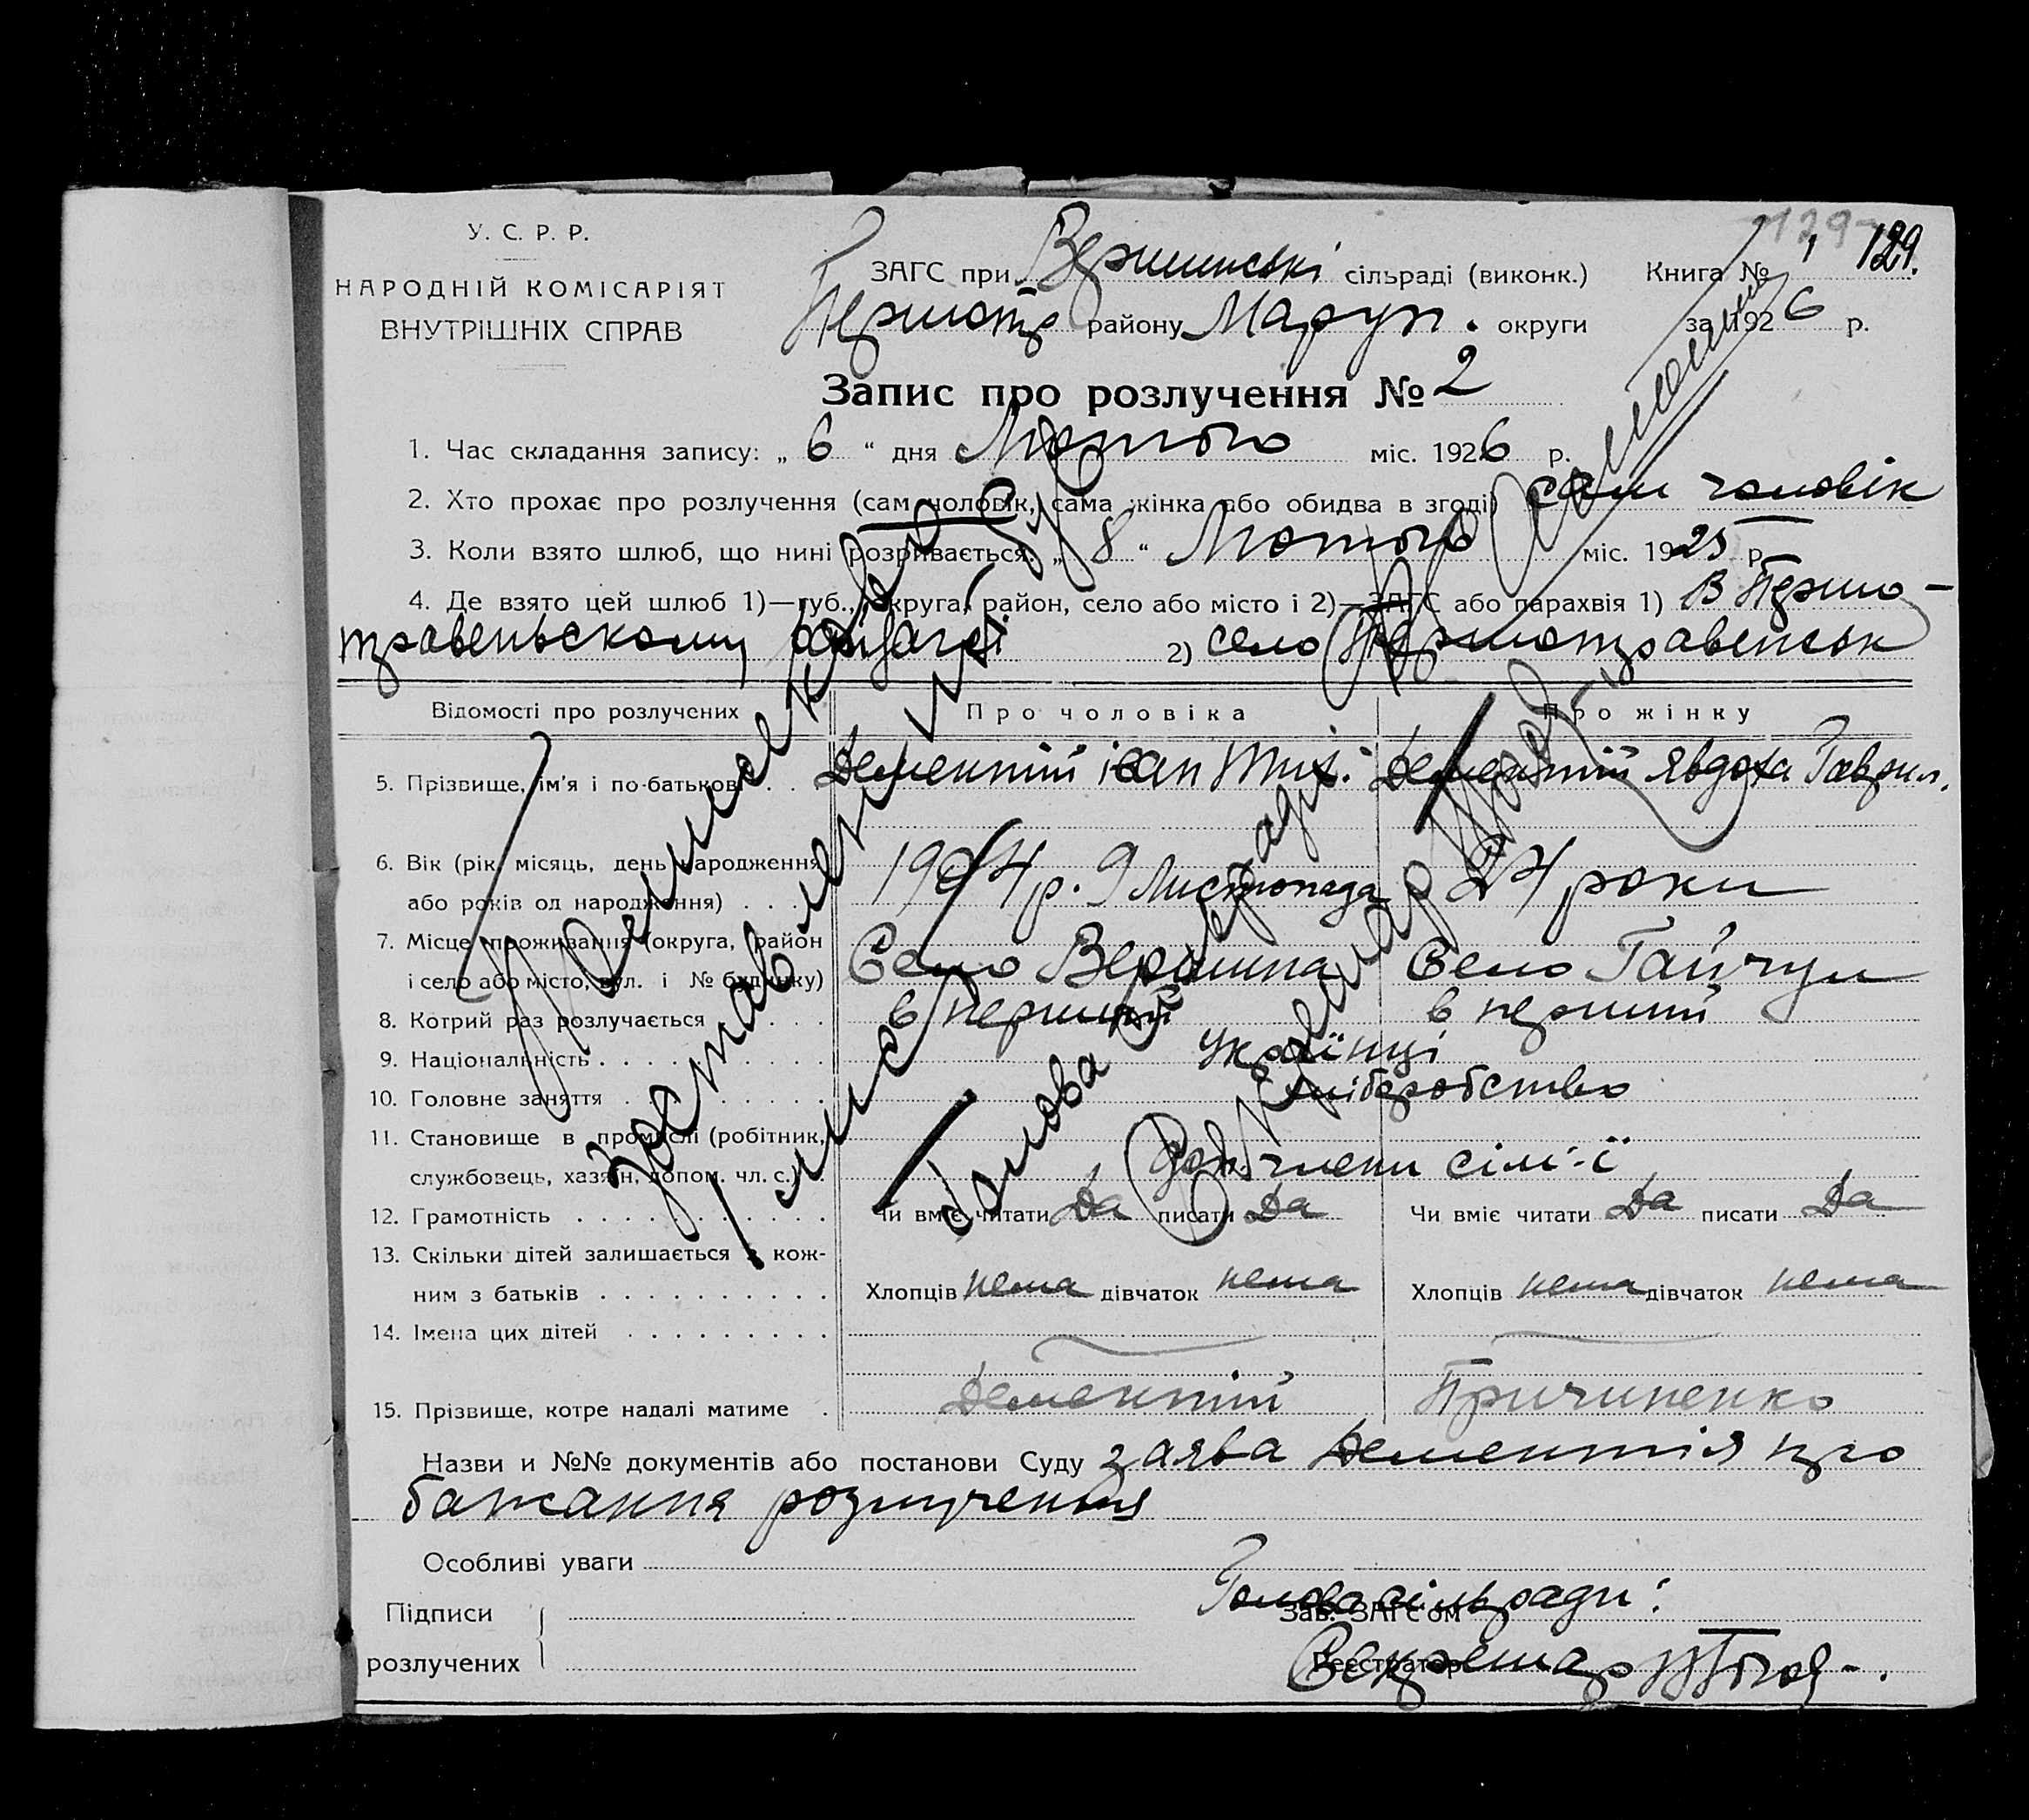 129
129.
У. С. Р. Р.
НАРОДНІЙ КОМІСАРІЯТ
ВНУТРІШНІХ СПРАВ
ЗАГС при Вершинські сільраді (виконк.) Книга № 1
Першотр району Маруп. округи за 1926 р.
Запис про розлучення № 2
1. Час складання запису: „ 6 “ дня Лютого міс. 1926 р.
2. Хто прохає про розлучення (сам чоловік, сама жінка або обидва в згоді) сам чоловік
3. Коли взято шлюб, що нині розривається: „ 8 “ Лютого міс. 1925 р.
4. Де взято цей шлюб 1)—губ., округа, район, село або місто і 2)—ЗАГС або парахвія 1) В Першо-
травенському 2) село Першотравенськ
Відомості про розлучених Про чоловіка Про жінку
5. Прізвище, ім'я і по-батькові . . Дементій іван Тих. Дементій Явдоха Гаврил.
6. Вік (рік, місяць, день народження
або років од народження) . . . . 1904 р. 9 Листопада 24 роки
7. Місце проживання (округа, район
і село або місто, вул. і № будинку) Село Вершина Село Гайчул
8. Котрий раз розлучається . . . . в перший в перший
9. Національність . . . . . . . . . Українці
10. Головне заняття . . . . . . . . хліборобство
11. Становище в промислі (робітник,
службовець, хазяїн, допом. чл. с.) . Доп. члени сімї
12. Грамотність . . . . . . . . . . Чи вміє читати Да писати Да Чи вміє читати Да писати Да
13. Скільки дітей залишається з кож-
ним з батьків . . . . . . . . . . Хлопців нема дівчаток нема Хлопців нема дівчаток нема
14. Імена цих дітей . . . . . . . . .
15. Прізвище, котре надалі матиме . Дементій Причиненко
Назви и №№ документів або постанови Суду заява Дементія про
бажання розлучення
Особливі уваги
Підписи
розлучених
Голова сільради:
Зав. ЗАГС'ом
Реєстратор
Секретар
Голова сільради
Секретар